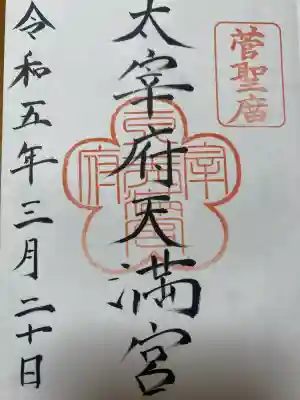 菅聖庿
太宰府天満宮
令和五年三月二十日